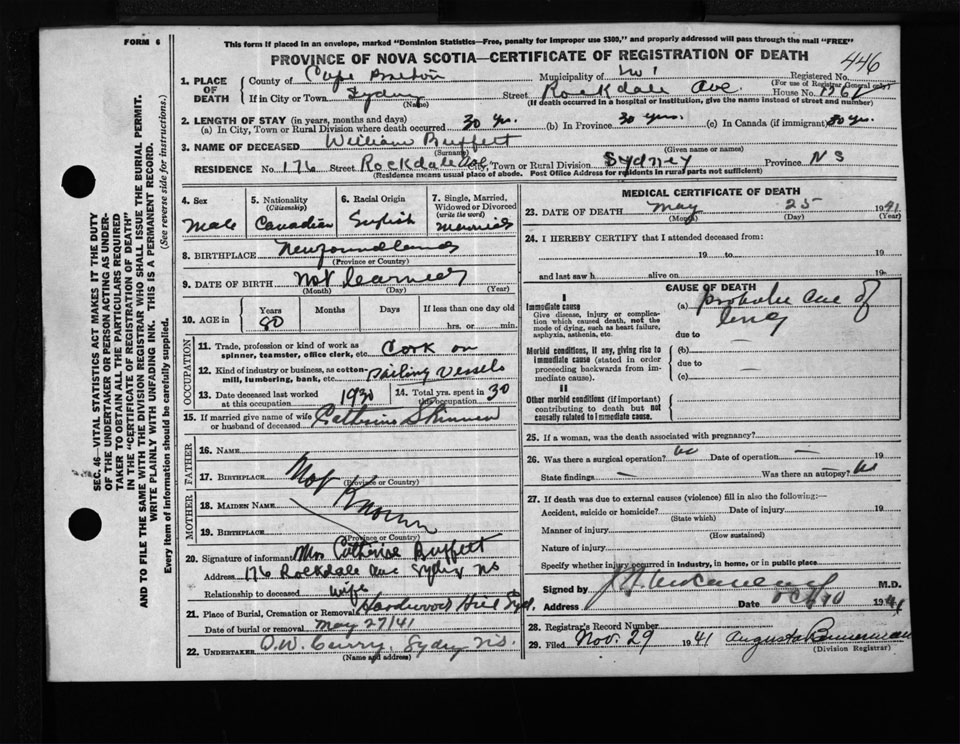 FORM 6
This form if placed in an envelope, marked "Dominion Statistics—Free, penalty for improper use $300," and properly addressed will pass through the mail "FREE"
PROVINCE OF NOVA SCOTIA—CERTIFICATE OF REGISTRATION OF DEATH
446
SEC. 46 - VITAL STATISTICS ACT MAKES IT THE DUTY
OF THE UNDERTAKER OR PERSON ACTING AS UNDER-
TAKER TO OBTAIN ALL THE PARTICULARS REQUIRED
IN THE "CERTIFICATE OF REGISTRATION OF DEATH"
AND TO FILE THE SAME WITH THE DIVISION REGISTRAR WHO SHALL ISSUE THE BURIAL PERMIT.
WRITE PLAINLY WITH UNFADING INK. THIS IS A PERMANENT RECORD.
Every item of information should be carefully supplied. (See reverse side for instructions.)
1. PLACE OF DEATH
County of Cape Breton Municipality of Registered No.
(For use of Registrar General only)
If in City or Town Sydney Street Rockdale Ave. House No. 176
(Name) (If death occurred in a hospital or institution, give the name instead of street and number)
2. LENGTH OF STAY (in years, months and days)
(a) In City, Town or Rural Division where death occurred 30 yrs. (b) In Province 30 yrs. (c) In Canada (if immigrant) 30 yrs.
3. NAME OF DECEASED William Buffett
(Surname) (Given name or names)
RESIDENCE No. 176 Street Rockdale Ave City, Town or Rural Division Sydney Province N S
(Residence means usual place of abode. Post Office Address for residents in rural parts not sufficient)
4. Sex Male
5. Nationality (Citizenship) Canadian
6. Racial Origin English
7. Single, Married, Widowed or Divorced (write the word) Married
8. BIRTHPLACE Newfoundland
(Province or Country)
9. DATE OF BIRTH Not learned
(Month) (Day) (Year)
10. AGE in Years 80 Months Days If less than one day old
hrs. or min.
OCCUPATION
11. Trade, profession or kind of work as
spinner, teamster, office clerk, etc. Cook on
12. Kind of industry or business, as cotton-
mill, lumbering, bank, etc. Sailing Vessels
13. Date deceased last worked
at this occupation 1930
14. Total yrs. spent in
this occupation 30
15. If married give name of wife
or husband of deceased Catherine Skinner
FATHER
16. NAME
17. BIRTHPLACE Not Known
(Province or Country)
MOTHER
18. MAIDEN NAME
19. BIRTHPLACE
(Province or Country)
20. Signature of informant Mrs Catherine Buffett
Address 176 Rockdale Ave Sydney NS
Relationship to deceased wife
21. Place of Burial, Cremation or Removal Hardwood Hill Syd.
Date of burial or removal May 27/41
22. UNDERTAKER O.W. Curry, Sydney N.S.
(Name and address)
MEDICAL CERTIFICATE OF DEATH
23. DATE OF DEATH May 25 1941
(Month) (Day)
24. I HEREBY CERTIFY that I attended deceased from:
19 to 19
and last saw h alive on 19
CAUSE OF DEATH
I
Immediate cause
Give disease, injury or complica-
tion which caused death, not the
mode of dying, such as heart failure,
asphyxia, asthenia, etc.
(a) probable
due to
Morbid conditions, if any, giving rise to
immediate cause (stated in order
proceeding backwards from im-
mediate cause).
(b)
due to
(c)
II
Other morbid conditions (if important)
contributing to death but not
causally related to immediate cause.
25. If a woman, was the death associated with pregnancy?
26. Was there a surgical operation? no Date of operation — 19
State findings — Was there an autopsy? no
27. If death was due to external causes (violence) fill in also the following:—
Accident, suicide or homicide? Date of injury 19
(State which)
Manner of injury
(How sustained)
Nature of injury
Specify whether injury occurred in industry, in home, or in public place
Signed by M.D.
Address Date Oct 10 1941
28. Registrar's Record Number
29. Filed Nov. 29 1941 Augusta Bannerman
(Division Registrar)